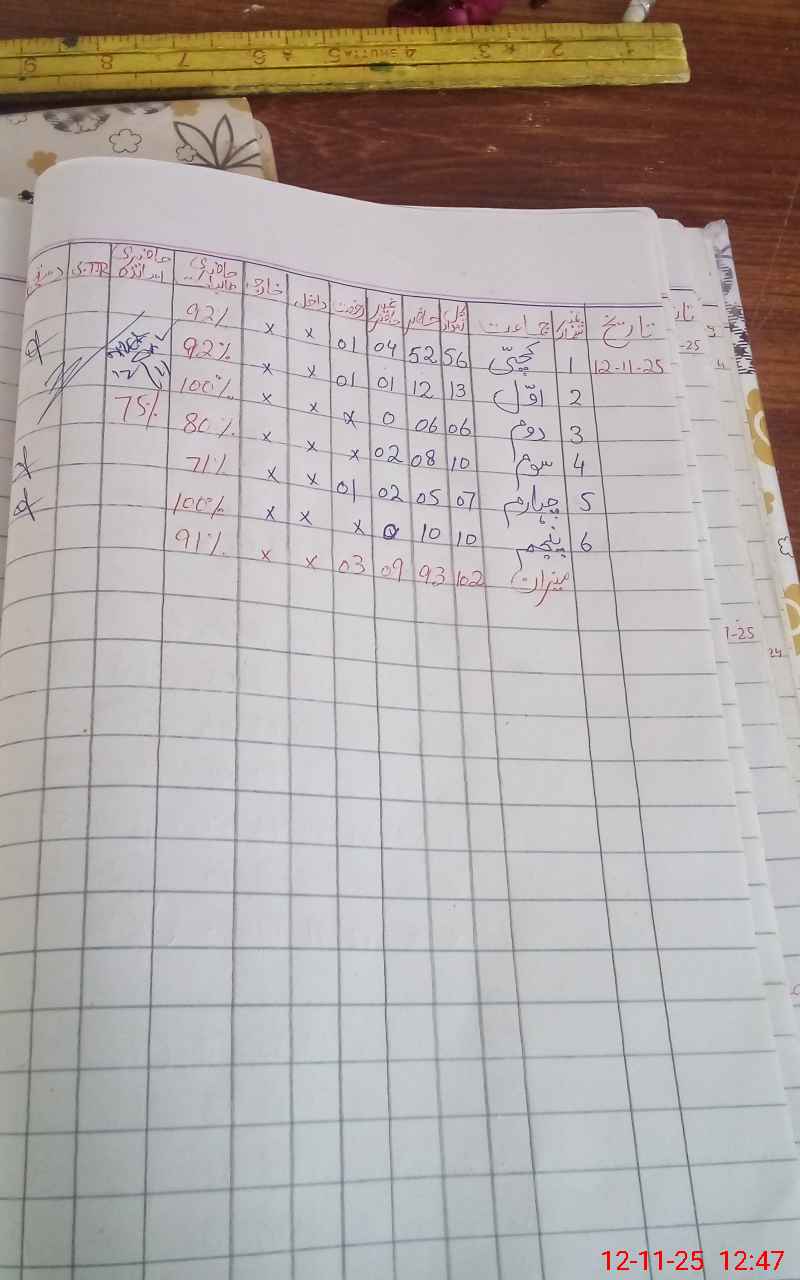 تاریخ نمبر شمار جماعت کل تعداد حاضر غیر حاضر رخصت داخل خارج حاضری طلبا حاضری اساتذہ S.T.R دستخط
12-11-25 1 کچی 56 52 04 01 x x 92%
2 اوّل 13 12 01 01 x x 92%
3 دوم 06 06 0 x x x 100%
4 سوم 10 08 02 x x x 80% 75%
5 چہارم 07 05 02 01 x x 71%
6 پنجم 10 10 0 x x x 100%
میزان 102 93 09 03 x x 91%
تا
-25
1-25
24
1 2 3 4 5 6 7 8 9
12-11-25 12:47